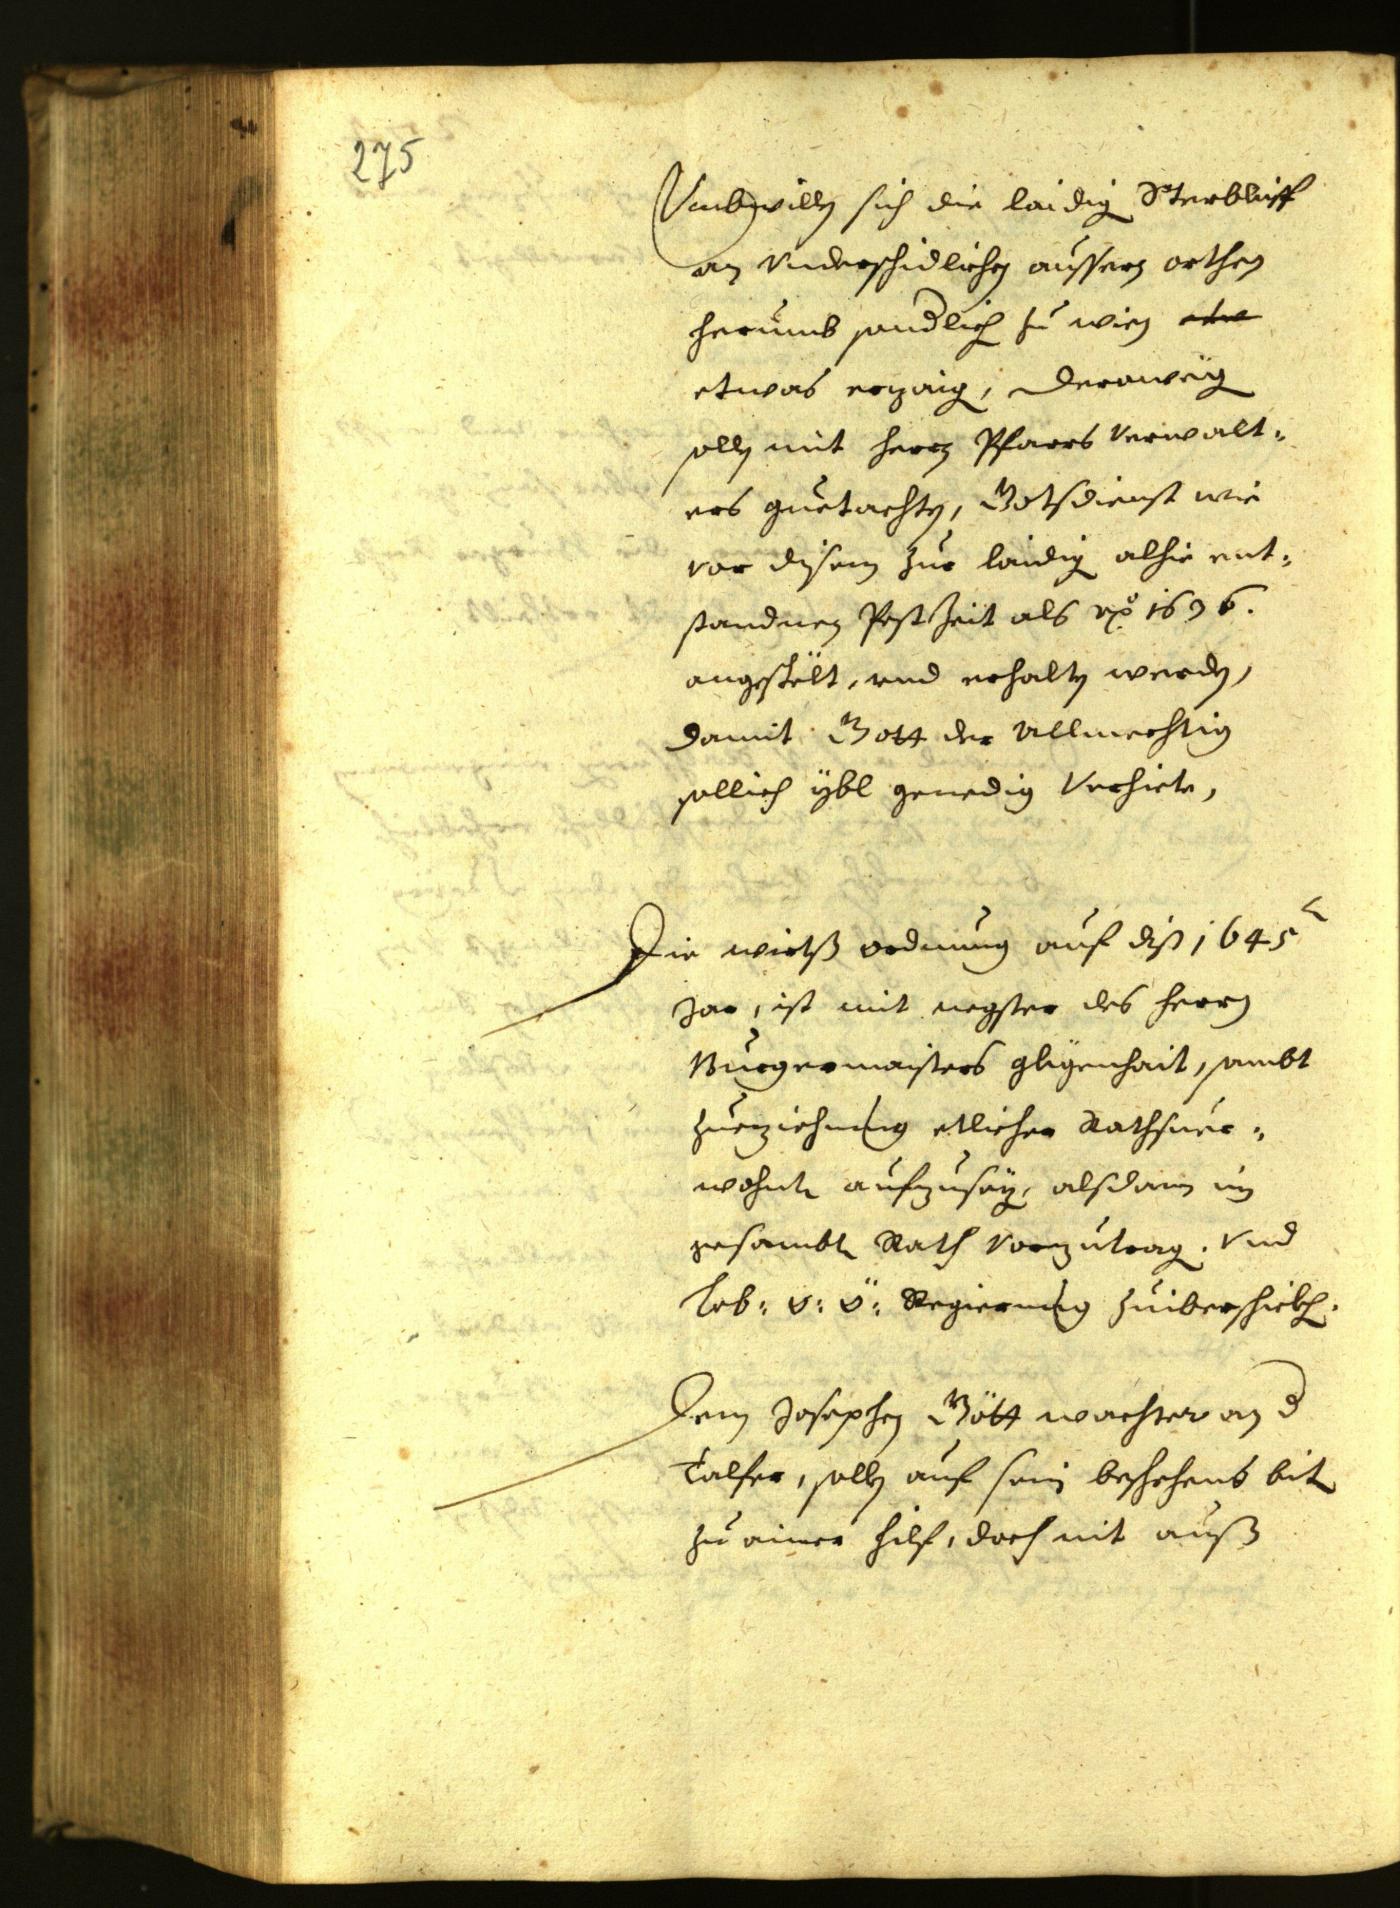 275
Umbwillen sich die laidig Sterbleuff
an Underschidlichen aussern orthen
herumb sondlich zu wien etw
etwas erzaig, derowegen
sollen mit herrn Pfarrs Verwalt¬
ers guetachten, Gotsdienst wie
vor disem zur laidig alhie ent¬
standnen Pest Zeit als ao 1636.
angestölt, und erhalten werden,
damit Gott der Allmechtig
sollich ybl genedig Verhiete,
Die wirtß ordnung auf diß 1645
Jar, ist mit negster des herrn
Burgermaisters glegenhait, sambt
zueziehung etlicher Rathsver¬
wohnte aufzusezen, alsdann im
gesambten Rath vorzutragen. Und
Lob: O: Ö: Regierung zuiberschickhen.
Dem Josephen Gött wachter an d
Talfer, sollen auf sein beschehens biten
zu ainer hilf, doch nit auß